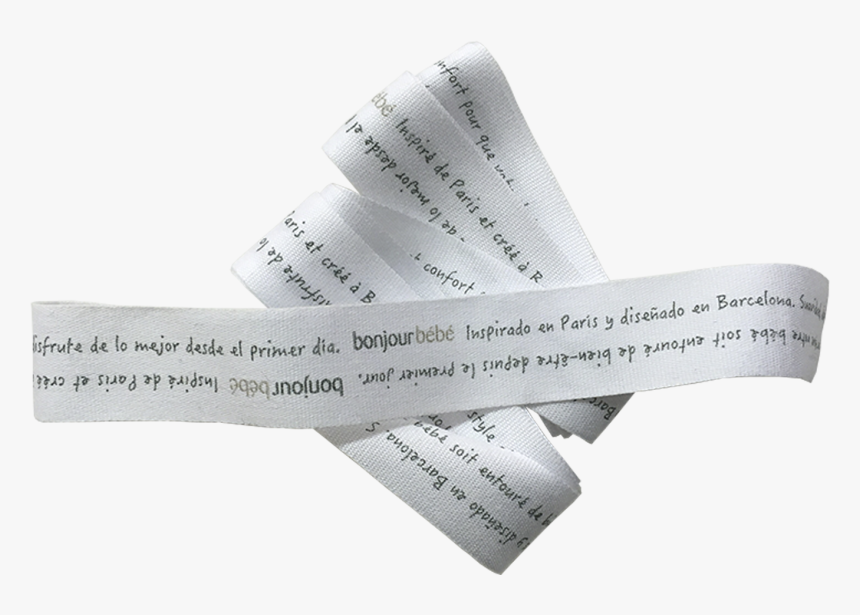 nfort pour que
ébé Inspiré de Paris et créé à
de lo mejor desde el
aris et créé à B
isfrute de lo
confort
isfrute de lo mejor desde el primer día. bonjourbébé Inspirado en Paris y diseñado en Barcelona.
bébé soit entouré de bien-être depuis le premier jour. bonjourbébé Inspiré de Paris et créé
style
bébé soit entouré de b
y diseñado en Barcelona. S